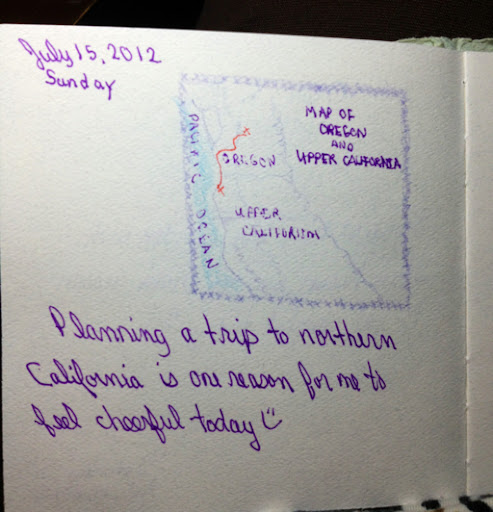 July 15, 2012
Sunday
MAP OF
OREGON
AND
UPPER CALIFORNIA
PACIFIC OCEAN
OREGON
UPPER
CALIFORNIA
Planning a trip to northern
California is one reason for me to
feel cheerful today